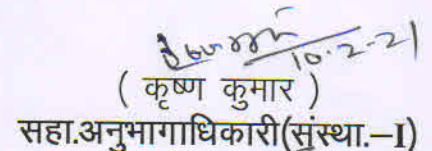 10.2.21
( कृष्ण कुमार )
सहा.अनुभागाधिकारी(संस्था.–I)